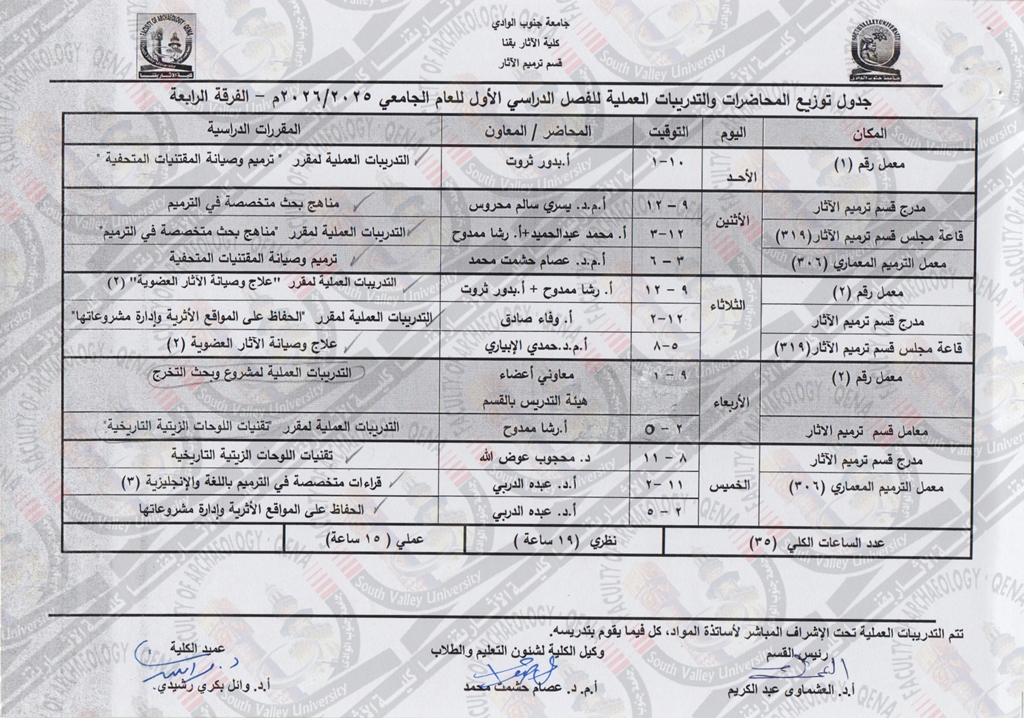 جامعة جنوب الوادي
كلية الآثار بقنا
قسم ترميم الآثار
جدول توزيع المحاضرات والتدريبات العملية للفصل الدراسي الأول للعام الجامعي ٢٠٢٦/٢٠٢٥م - الفرقة الرابعة
المكان اليوم التوقيت المحاضر / المعاون المقررات الدراسية
معمل رقم (١) الأحد ١٠-١ أ.بدور ثروت التدريبات العملية لمقرر " ترميم وصيانة المقتنيات المتحفية "
مدرج قسم ترميم الآثار الأثنين ٩ - ١٢ أ.م.د. يسري سالم محروس مناهج بحث متخصصة في الترميم
قاعة مجلس قسم ترميم الآثار (٣١٩) ١٢-٣ أ. محمد عبدالحميد+أ. رشا ممدوح التدريبات العملية لمقرر "مناهج بحث متخصصة في الترميم"
معمل الترميم المعماري (٣٠٦) ٣ - ٦ أ.م.د. عصام حشمت محمد ترميم وصيانة المقتنيات المتحفية
معمل رقم (٢) الثلاثاء ٩ - ١٢ أ. رشا ممدوح + أ.بدور ثروت التدريبات العملية لمقرر "علاج وصيانة الآثار العضوية" (٢)
مدرج قسم ترميم الآثار ١٢-٢ أ. وفاء صادق التدريبات العملية لمقرر "الحفاظ على المواقع الأثرية وإدارة مشروعاتها"
قاعة مجلس قسم ترميم الآثار (٣١٩) ٥-٨ أ.م.د.حمدي الإبياري علاج وصيانة الآثار العضوية (٢)
معمل رقم (٢) الأربعاء ٩ - ١ معاوني أعضاء هيئة التدريس بالقسم التدريبات العملية لمشروع وبحث التخرج
معامل قسم ترميم الاثار ٢ - ٥ أ.رشا ممدوح التدريبات العملية لمقرر "تقنيات اللوحات الزيتية التاريخية"
مدرج قسم ترميم الآثار الخميس ٨ - ١١ د. محجوب عوض الله تقنيات اللوحات الزيتية التاريخية
معمل الترميم المعماري (٣٠٦) ١١-٢ أ.د. عبده الدربي قراءات متخصصة في الترميم باللغة والإنجليزية (٣)
٢ - ٥ أ.د. عبده الدربي الحفاظ على المواقع الأثرية وإدارة مشروعاتها
عدد الساعات الكلي (٣٥) نظري (١٩ ساعة ) عملي ( ١٥ ساعة)
تتم التدريبات العملية تحت الإشراف المباشر لأساتذة المواد، كل فيما يقوم بتدريسه.
رئيس القسم وكيل الكلية لشئون التعليم والطلاب عميد الكلية
أ.د. العشماوى عبد الكريم أ.م. د. عصام حشمت محمد أ.د. وائل بكري رشيدي.